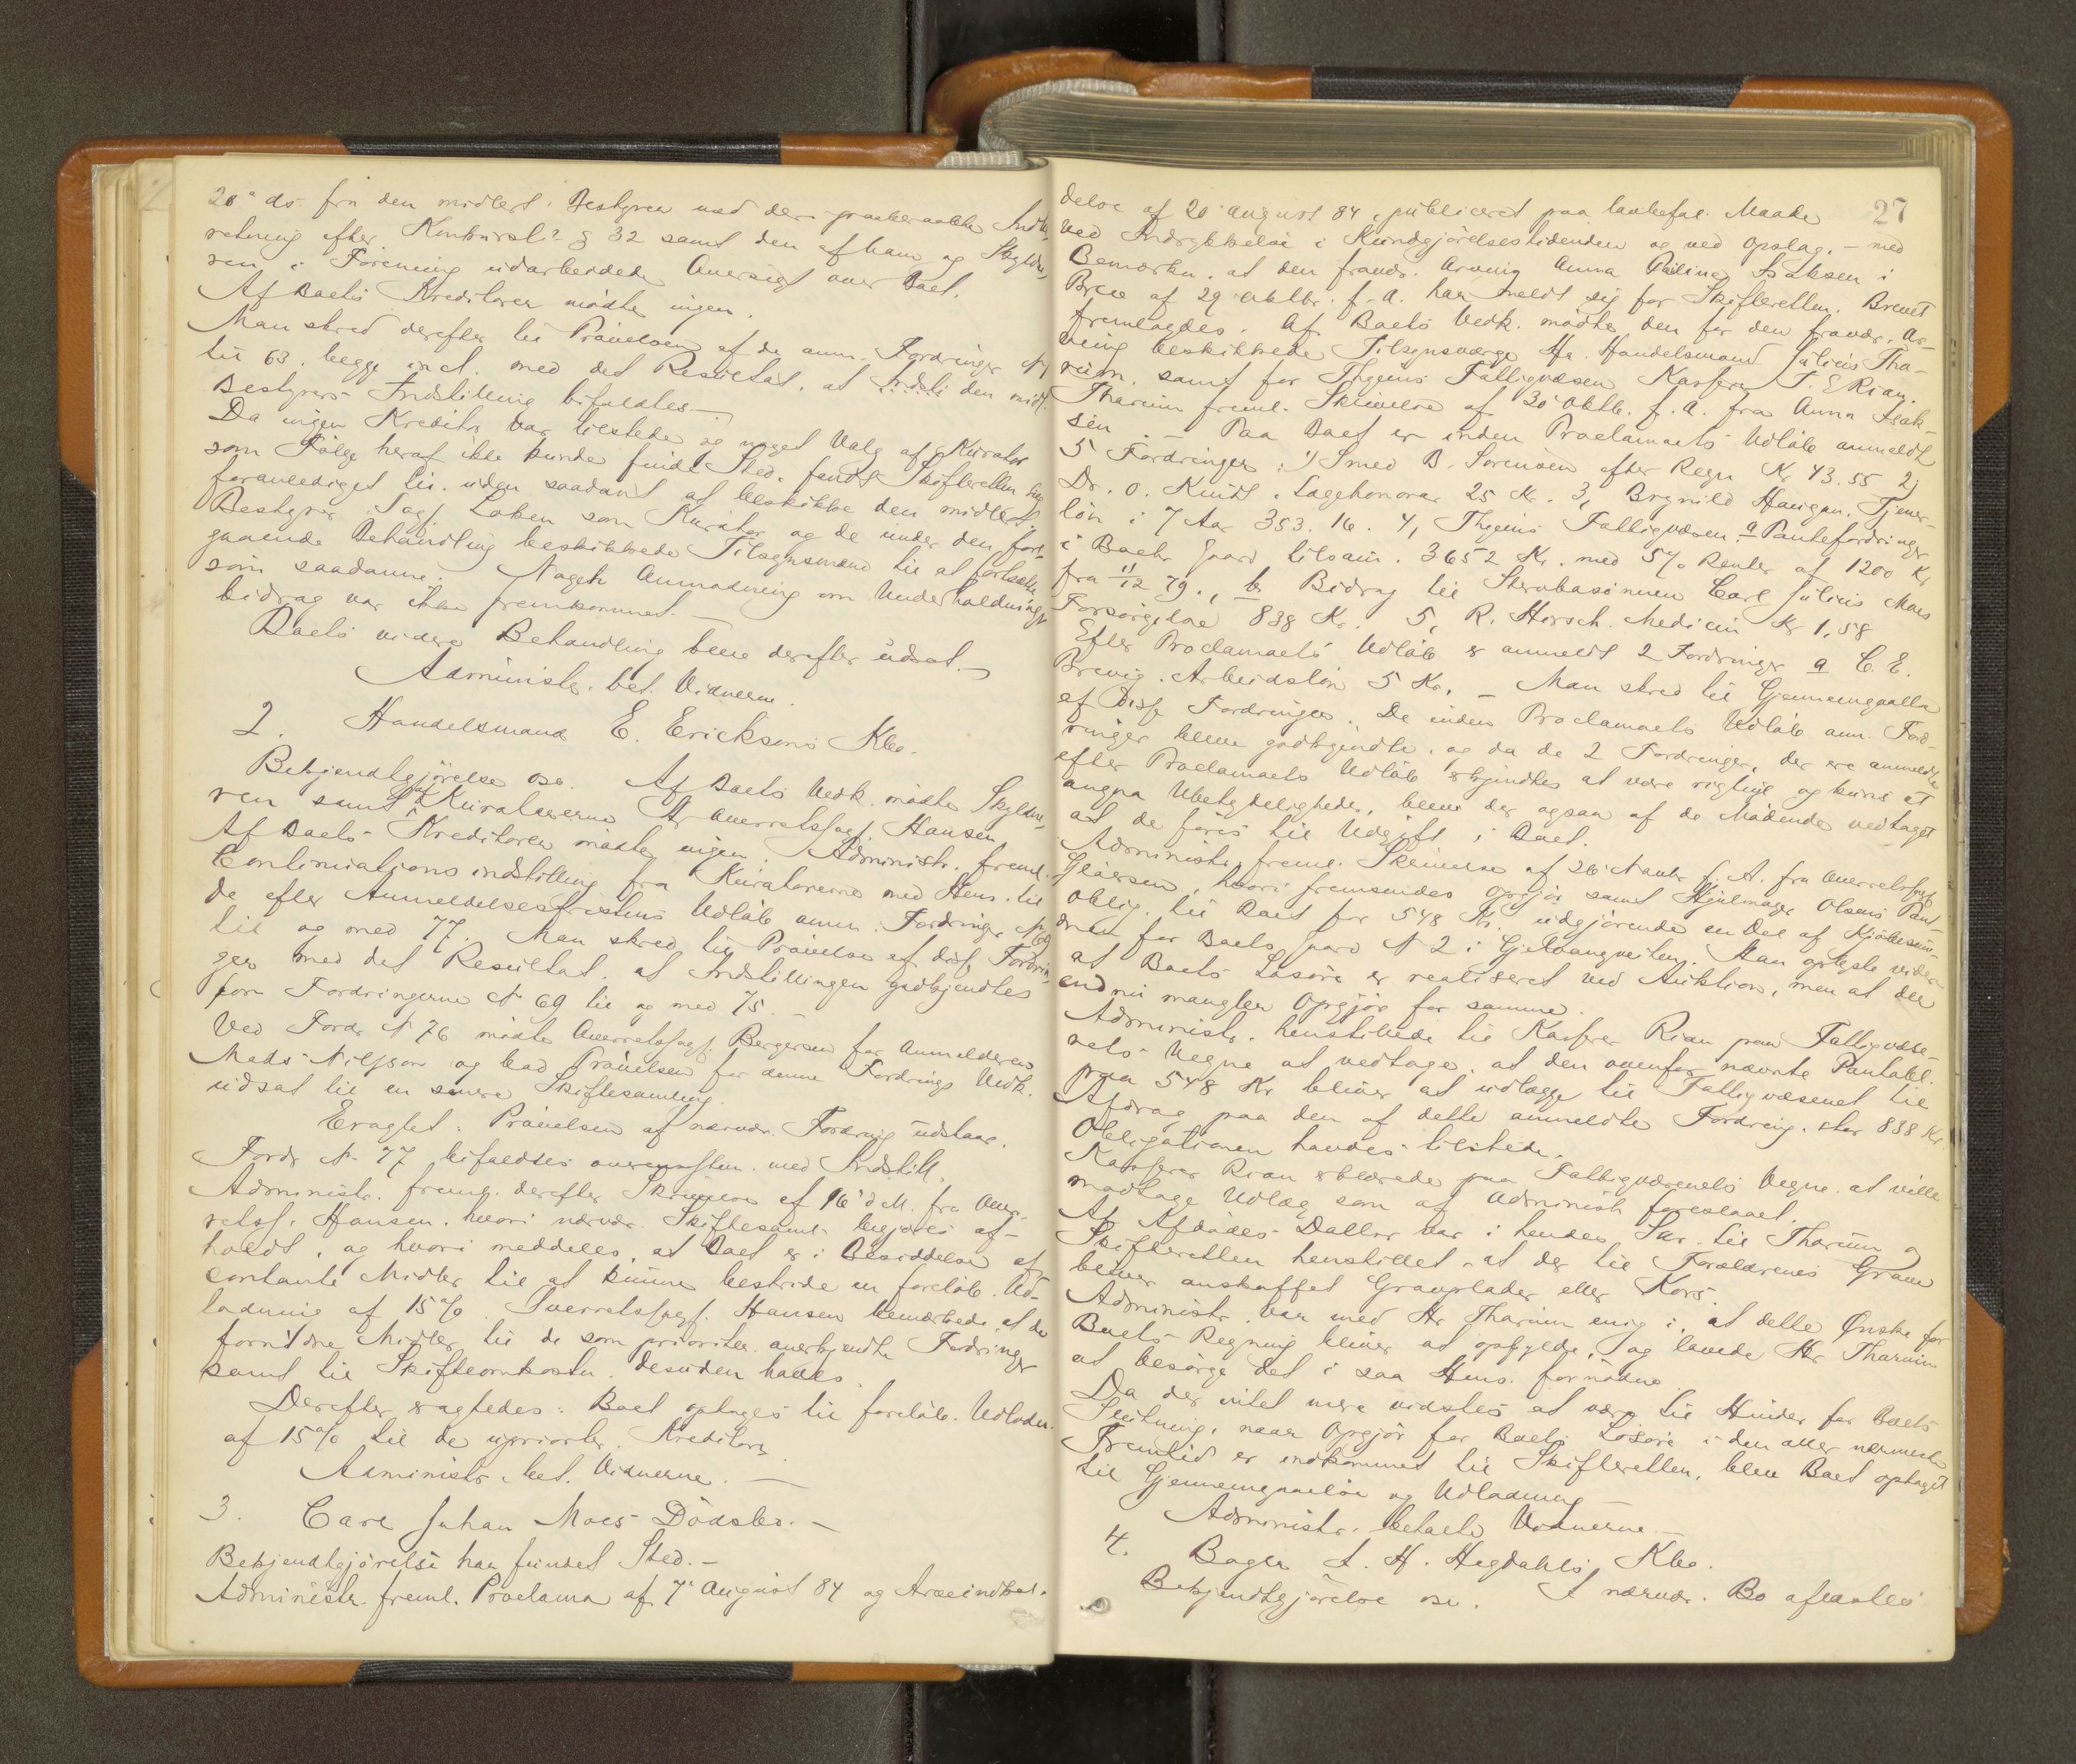 20de ds. fra den midlert. Bestyrer med den paaberaabte Indbe-
retning efter Konkursl. § 32 samt den af ham og Skyldne-
ren i Forening udarbeidede Oversigt over Boet.
Af Boets Kreditorer mødte ingen.
Man skred derefter til Prøvelsen af de anm. Fordringer № 1
til 63, begge incl. med det Resultat, at den midl.
Bestyrers Indstilling bifaldtes. —
Da ingen Kreditor var tilstede og noget Valg af Kurator
som Følge heraf ikke kunde finde Sted, fandt Skifteretten sig
foranlediget til uden saadant at beskikke den midlert.
Bestyrer Sagf. Løken som Kurator og de under den fore-
gaaende Behandling beskikkede Tilsynsmænd til at fortsætte
som saadanne. Nogen Anmodning om Underholdnings-
bidrag var ikke fremkommet. —
Boets videre Behandling blev derefter udsat. —
Administr. bet. Vidnerne.
2. Handelsmand E. Ericksens Kbo.
Bekjendtgjørelse osv. Af Boets Vedk. mødte Skyldne-
ren samt af Kuratorerne Hr Overretssagf. Hansen
Af Boets Kreditorer mødte ingen. Administr. freml.
Continuationsindstilling fra Kuratorerne med Hens. til
de efter Anmeldelsesfristens Udløb anm. Fordringer № 69
til og med 77. Man skred til Prøvelse af disse Fordrin-
ger med det Resultat, at Indstillingen godkjendtes
for Fordringerne № 69 til og med 75. —
Ved Fordr. № 76 mødte Overretssagf. Bergersen for Anmelderen
Mads Nilsson og bad Prøvelsen for denne Fordrings Vedk.
udsat til en senere Skiftesamling.
Eragtet: Prøvelsen af nærvær. Fordring udstaar.
Fordr. № 77 bifaldtes overensstem. med Indstill.
Administr. freml. derefter Skrivelse af 16de d.M. fra Over-
retssf. Hansen, hvori nærvær. Skiftesaml. begjæres af-
holdt, og hvori meddeles, at Boet er i Besiddelse af
contante Midler til at kunne bestride en foreløb. Ud-
lodning af 15 %. Overretssagf. Hansen bemærkede, at de
fornødne Midler til de som prioritet. anerkjendte Fordringer
samt til Skifteomkostn. desuden haves.
Derefter eragtedes: Boet optages til foreløb. Udlodn.
af 15 % til de uprioriter. Kreditorer.
Administr. bet. Vidnerne. —
3. Carl Johan Moes Dødsbo. —
Bekjendtgjørelse har fundet Sted. —
Administr. freml. Proclama af 7de August 84 og Arveindkal-
27
delse af 20 August 84, publiceret paa lovbefal. Maade
ved Indrykkelse i Kundgjørelsestidenden og ved Opslag, — med
Bemærkn. at den fravær. Arving Anna Pauline Isaksen i
Brev af 29 Oktbr. f. A. har meldt sig for Skifteretten. Brevet
fremlagdes. Af Boets Vedk. mødte den for den fravær. Ar-
ving beskikkede Tilsynsværge Hr. Handelsmand Julius Tha-
rum, samt for Thjems Fattigvæsen Kasserer T. E. Rian.
Tharum freml. Skrivelse af 30 Oktb. f. A. fra Anna Isak-
sen. — Paa Boet er inden Proclamaets Udløb anmeldt
5 Fordringer: 1) Smed B. Sørensen efter Regn. Kr 43.55 2)
Dr. O. Knudt. Lægehonorar 25 Kr. 3, Brynild Haugan. Tjener-
løn i 7 Aar 353.16. 4, Thjems Fattigvæsen a Pantefordringer
i Boets Gaard tilsam. 3652 Kr. med 5 % Renter af 1200 Kr
fra 11/12 79., b Bidrag til Stervbosønnen Carl Julius Moes
Forsørgelse 838 Kr. 5, R. Hirsch. Medicin Kr 1,58
Efter Proclamaets Udløb er anmeldt 2 Fordringer a C. E.
Brevig. Arbeidsløn 5 Kr. — Man skred til Gjennemgaaelse
af disse Fordringer. De inden Proclamaets Udløb anm. Ford-
ringer bleve godkjendte, og da de 2 Fordringer, der ere anmeldte
efter Proclamaets Udløb erkjendtes at være rigtige og kuns at
angaa Ubetydeligheder, blev der ogsaa af de Mødende vedtaget
at de føres til Udgift i Boet.
Administr. freml. Skrivelse af 26 Novbr. f. A. fra Overretssagf.
Gløersen, hvori fremsendes Opgjør samt Hjulmager Olsens Pant-
oblig. til Boet for 548 Kr. udgjørende en Del af Kjøbesum-
men for Boets Gaard № 2 i Gjelvangveiten. Man oplyste videre
at Boets Løsøre er realiseret ved Auktion, men at der
endnu mangler Opgjør for samme.
Administr. henstillede til Kasserer Rian paa Fattigvæse-
nets Vegne at vedtage, at den ovenfor nævnte Pantobl.
paa 548 Kr. bliver at udlægge til Fattigvæsenet til
Afdrag paa den af dette anmeldte Fordring, stor 838 Kr.
Obligationen havdes tilstede.
Kasserer Rian erklærede paa Fattigvæsenets Vegne at ville
modtage Udlæg som af Administr. foreslaaet.
Af Afdødes Datter var i hendes Skr. til Tharum og
Skifteretten henstillet, at der til Forældrenes Grave
bliver anskaffet Gravplader eller Kors.
Administr. var med Hr. Tharum enig i, at dette Ønske for
Boets Regning bliver at opfylde, og lovede Hr Tharum
at besørge det i saa Hens. fornødne.
Da der intet mere vidstes at være til Hinder for Boets
Slutning, naar Opgjør for Boets Løsøre i den aller nærmeste
Fremtid er indkommet til Skifteretten, blev Boet optaget
til Gjennemgaaelse og Udlodning —
Administr. betalte Vidnerne. —
4. Bager A. H. Hegdahls Kbo.
Bekjendtgjørelse osv. I nærvær. Bo afleveres